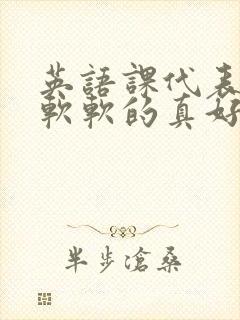 英語課代表
軟軟的真好
半步滄桑